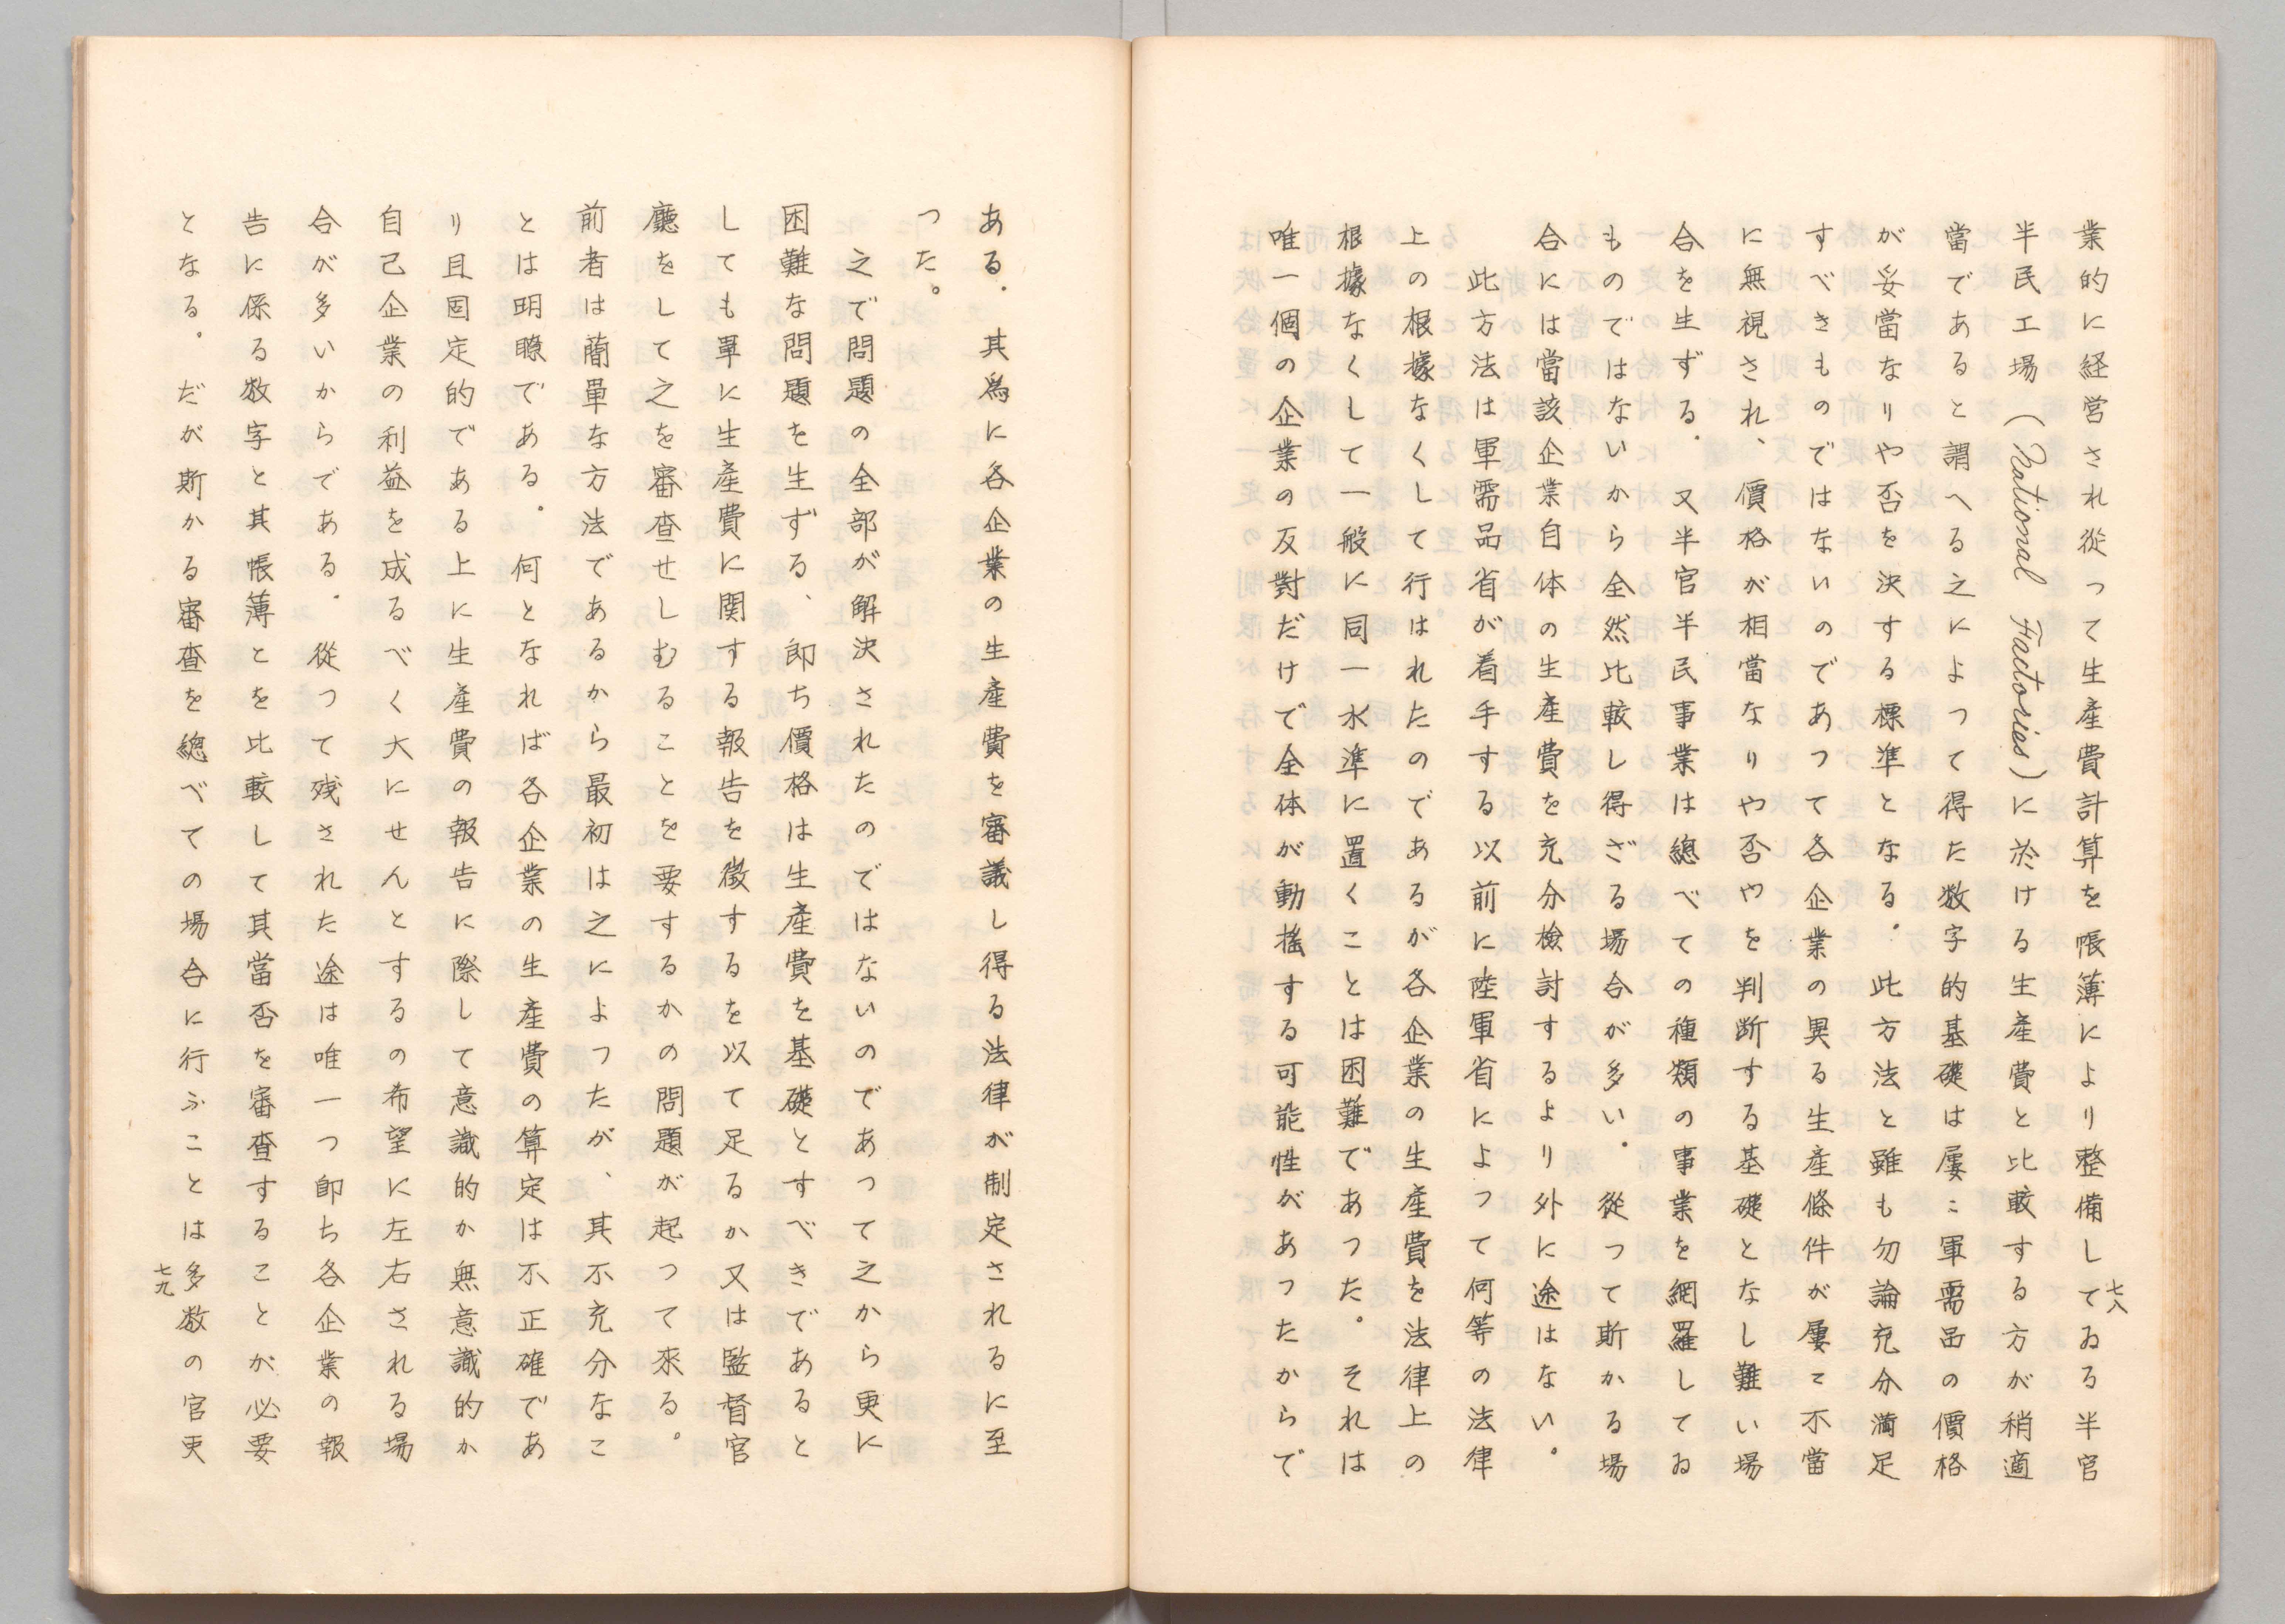 業的に経営され從って生産費計算を帳薄により整備してゐる半官
半民工場(National Factories)に於ける生産費と比較する方が稍適
當であると謂へる之によって得た数字的基礎は屢〻軍需品の價格
が妥當なりや否を決する標準となる。此方法と雖も勿論充分満足
すべきものではないのであつて各企業の異る生産條件が屢〻不當
に無視され、價格が相當なりや否やを判断する基礎となし難い場
合を生ずる。又半官半民事業は總べての種類の事業を網羅してゐ
ものではないから全然比較し得ざる場合が多い。從って斯かる場
合には當該企業自体の生産費を充分検討するより外に途はない。
此方法は軍需品省が着手する以前に陸軍省によって何等の法律
上の根據なくして行はれたのであるが各企業の生産費を法律上の
根據なくして一般に同一水準に置くことは困難であつた。それは
唯一個の企業の反對だけで全体が動搖する可能性があつたからで
七八
ある。其為に各企業の生産費を審議し得る法律が制定されるに至
つた。
之で問題の全部が解決されたのではないのであって之から更に
困難な問題を生ずる、即ち價格は生産費を基礎とすべきであると
しても單に生産費に関する報告を徴するを以て足るか又は監督官
廳をして之を審査せしむることを要するかの問題が起って來る。
前者は簡單な方法であるから最初は之によつたが、其不充分なこ
とは明瞭である。何となれば各企業の生産費の算定は不正確であ
り且固定的である上に生産費の報告に際して意識的か無意識的か
自己企業の利益を成るべく大にせんとするの希望に左右される場
合が多いからである。從つて残された途は唯一つ即ち各企業の報
告に係る数字と其帳薄とを比較して其當否を審査することが必要
となる。だが斯かる審査を總べての場合に行ふことは多数の官吏
七九